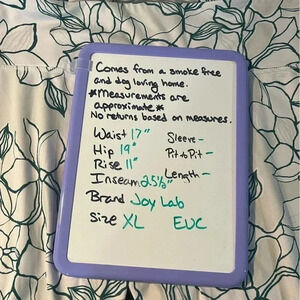 Comes from a smoke free
and dog loving home.
*Measurements are
approximate*
No returns based on measures.
Waist 17" Sleeve -
Hip 19" Pit to Pit -
Rise 11"
Inseam 25½" Length -
Brand Joy Lab
Size XL EUC